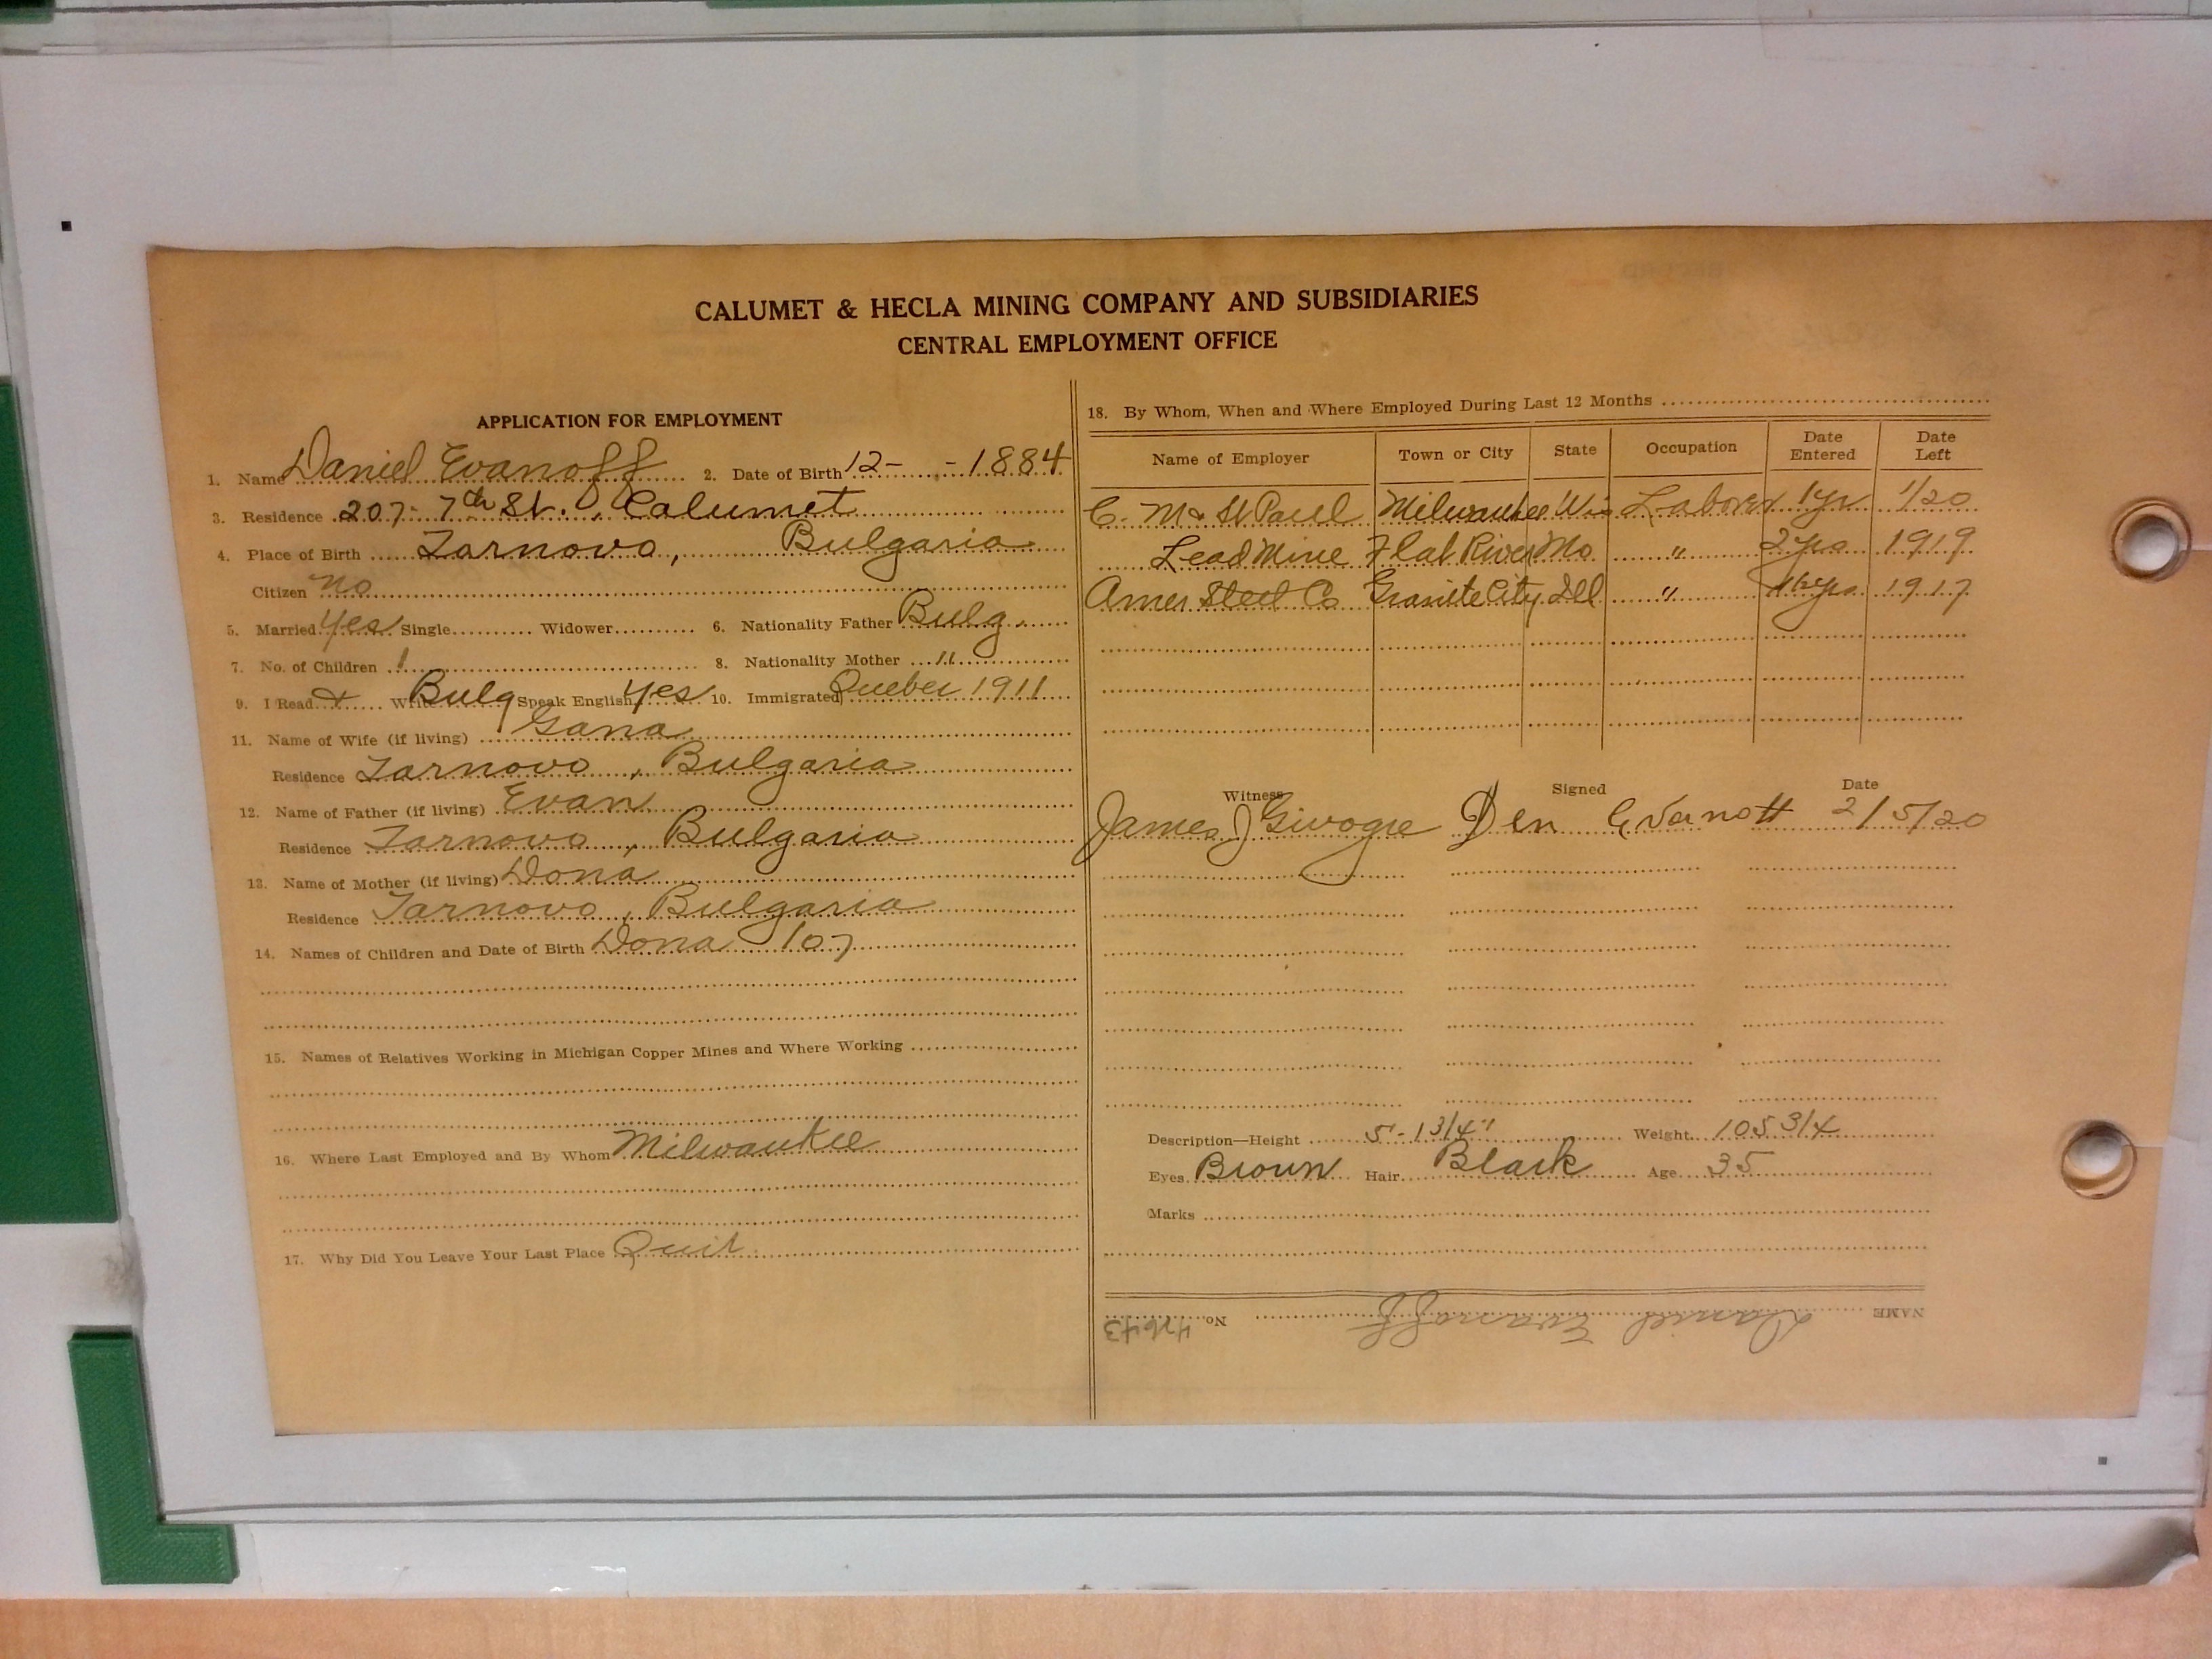 CALUMET & HECLA MINING COMPANY AND SUBSIDIARIES
CENTRAL EMPLOYMENT OFFICE
APPLICATION FOR EMPLOYMENT
1. Name Daniel Evanoff 2. Date of Birth 12- - 1884
3. Residence 207- 7th St., Calumet
4. Place of Birth Tarnovo, Bulgaria
Citizen no
5. Married yes Single Widower 6. Nationality Father Bulg.
7. No. of Children 1 8. Nationality Mother "
9. I Read & Write Bulg Speak English yes 10. Immigrated Quebec 1911
11. Name of Wife (if living) Gana
Residence Tarnovo, Bulgaria
12. Name of Father (if living) Evan
Residence Tarnovo, Bulgaria
13. Name of Mother (if living) Dona
Residence Tarnovo, Bulgaria
14. Names of Children and Date of Birth Dona 107
15. Names of Relatives Working in Michigan Copper Mines and Where Working
16. Where Last Employed and By Whom Milwaukee
17. Why Did You Leave Your Last Place Quit
18. By Whom, When and Where Employed During Last 12 Months
Name of Employer Town or City State Occupation Date Entered Date Left
C. M & St Paul Milwaukee Wis Laborer 1 yr 1/20
Lead Mine Flat River Mo " 2 yrs 1919
Amer Steel Co Granite City Ill " yrs 1917
Witness Signed Date
James J Den Evanoff 2/5/20
Description—Height 5'-1 3/4" Weight 105 3/4
Eyes Brown Hair Black Age 35
Marks
NAME Daniel Evanoff No. 42643